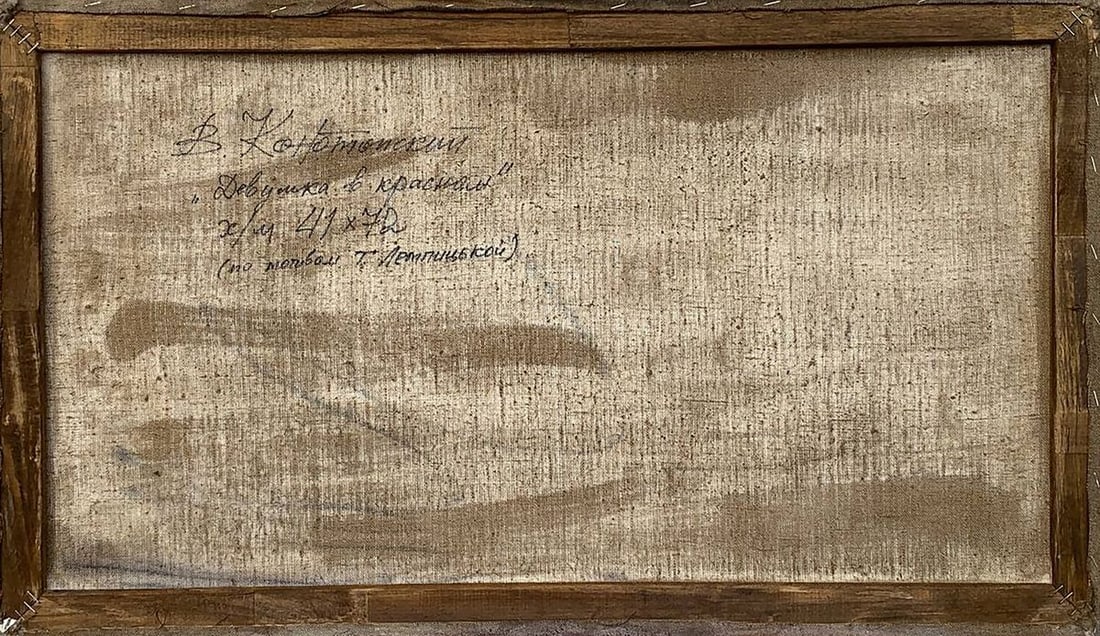 В. Конотопский
„Девушка в красном"
х/м 41х72
(по мотивам Т. Лемпицькой)